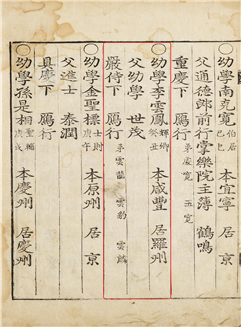 ○幼學南克寬 伯居 己巳 本宜寧 居 京
父通德郎前行掌樂院主簿 鶴鳴
重慶下 鴈行 弟處寬 五寬
○幼學李雲鳳 癸丑 本咸豐 居羅州
父幼學 世茂
嚴侍下 鴈行 弟雲龍 雲豹 雲麟
○幼學金聖標 士則 庚午 本原州 居 京
父進士 泰潤
具慶下 鴈行
○幼學孫是相 本慶州 居慶州